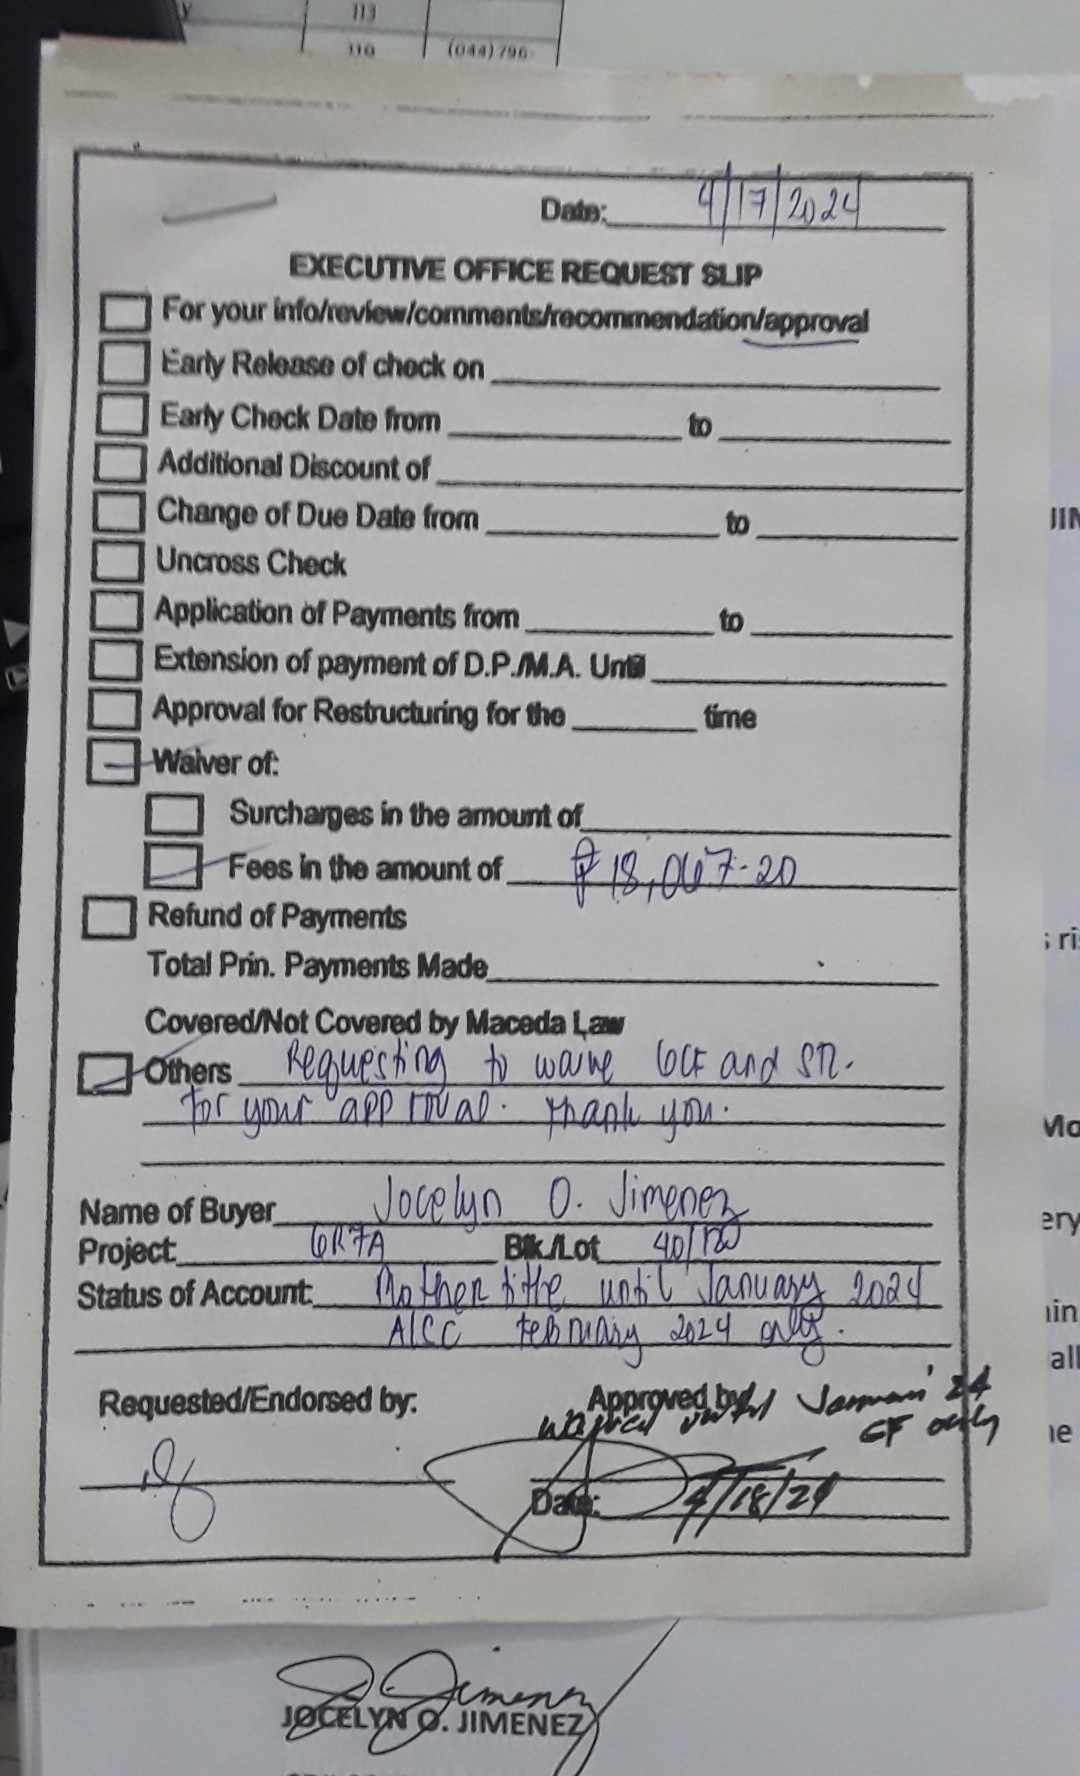 113
110 (044) 796-
Date: 4/17/2024
EXECUTIVE OFFICE REQUEST SLIP
For your info/review/comments/recommendation/approval
Early Release of check on
Early Check Date from to
Additional Discount of
Change of Due Date from to
Uncross Check
Application of Payments from to
Extension of payment of D.P./M.A. Until
Approval for Restructuring for the time
Waiver of:
Surcharges in the amount of
Fees in the amount of ₱ 18,067.20
Refund of Payments
Total Prin. Payments Made
Covered/Not Covered by Maceda Law
Others Requesting to waive and
for your approval. Thank you.
Name of Buyer Jocelyn O. Jimenez
Project: GR7A Blk./Lot 40/
Status of Account: Mother title until January 2024
February 2024 only.
Requested/Endorsed by: Approved by:
Waived until January '24
CF only
Date: 4/18/24
J. Jimenez
JOCELYN O. JIMENEZ